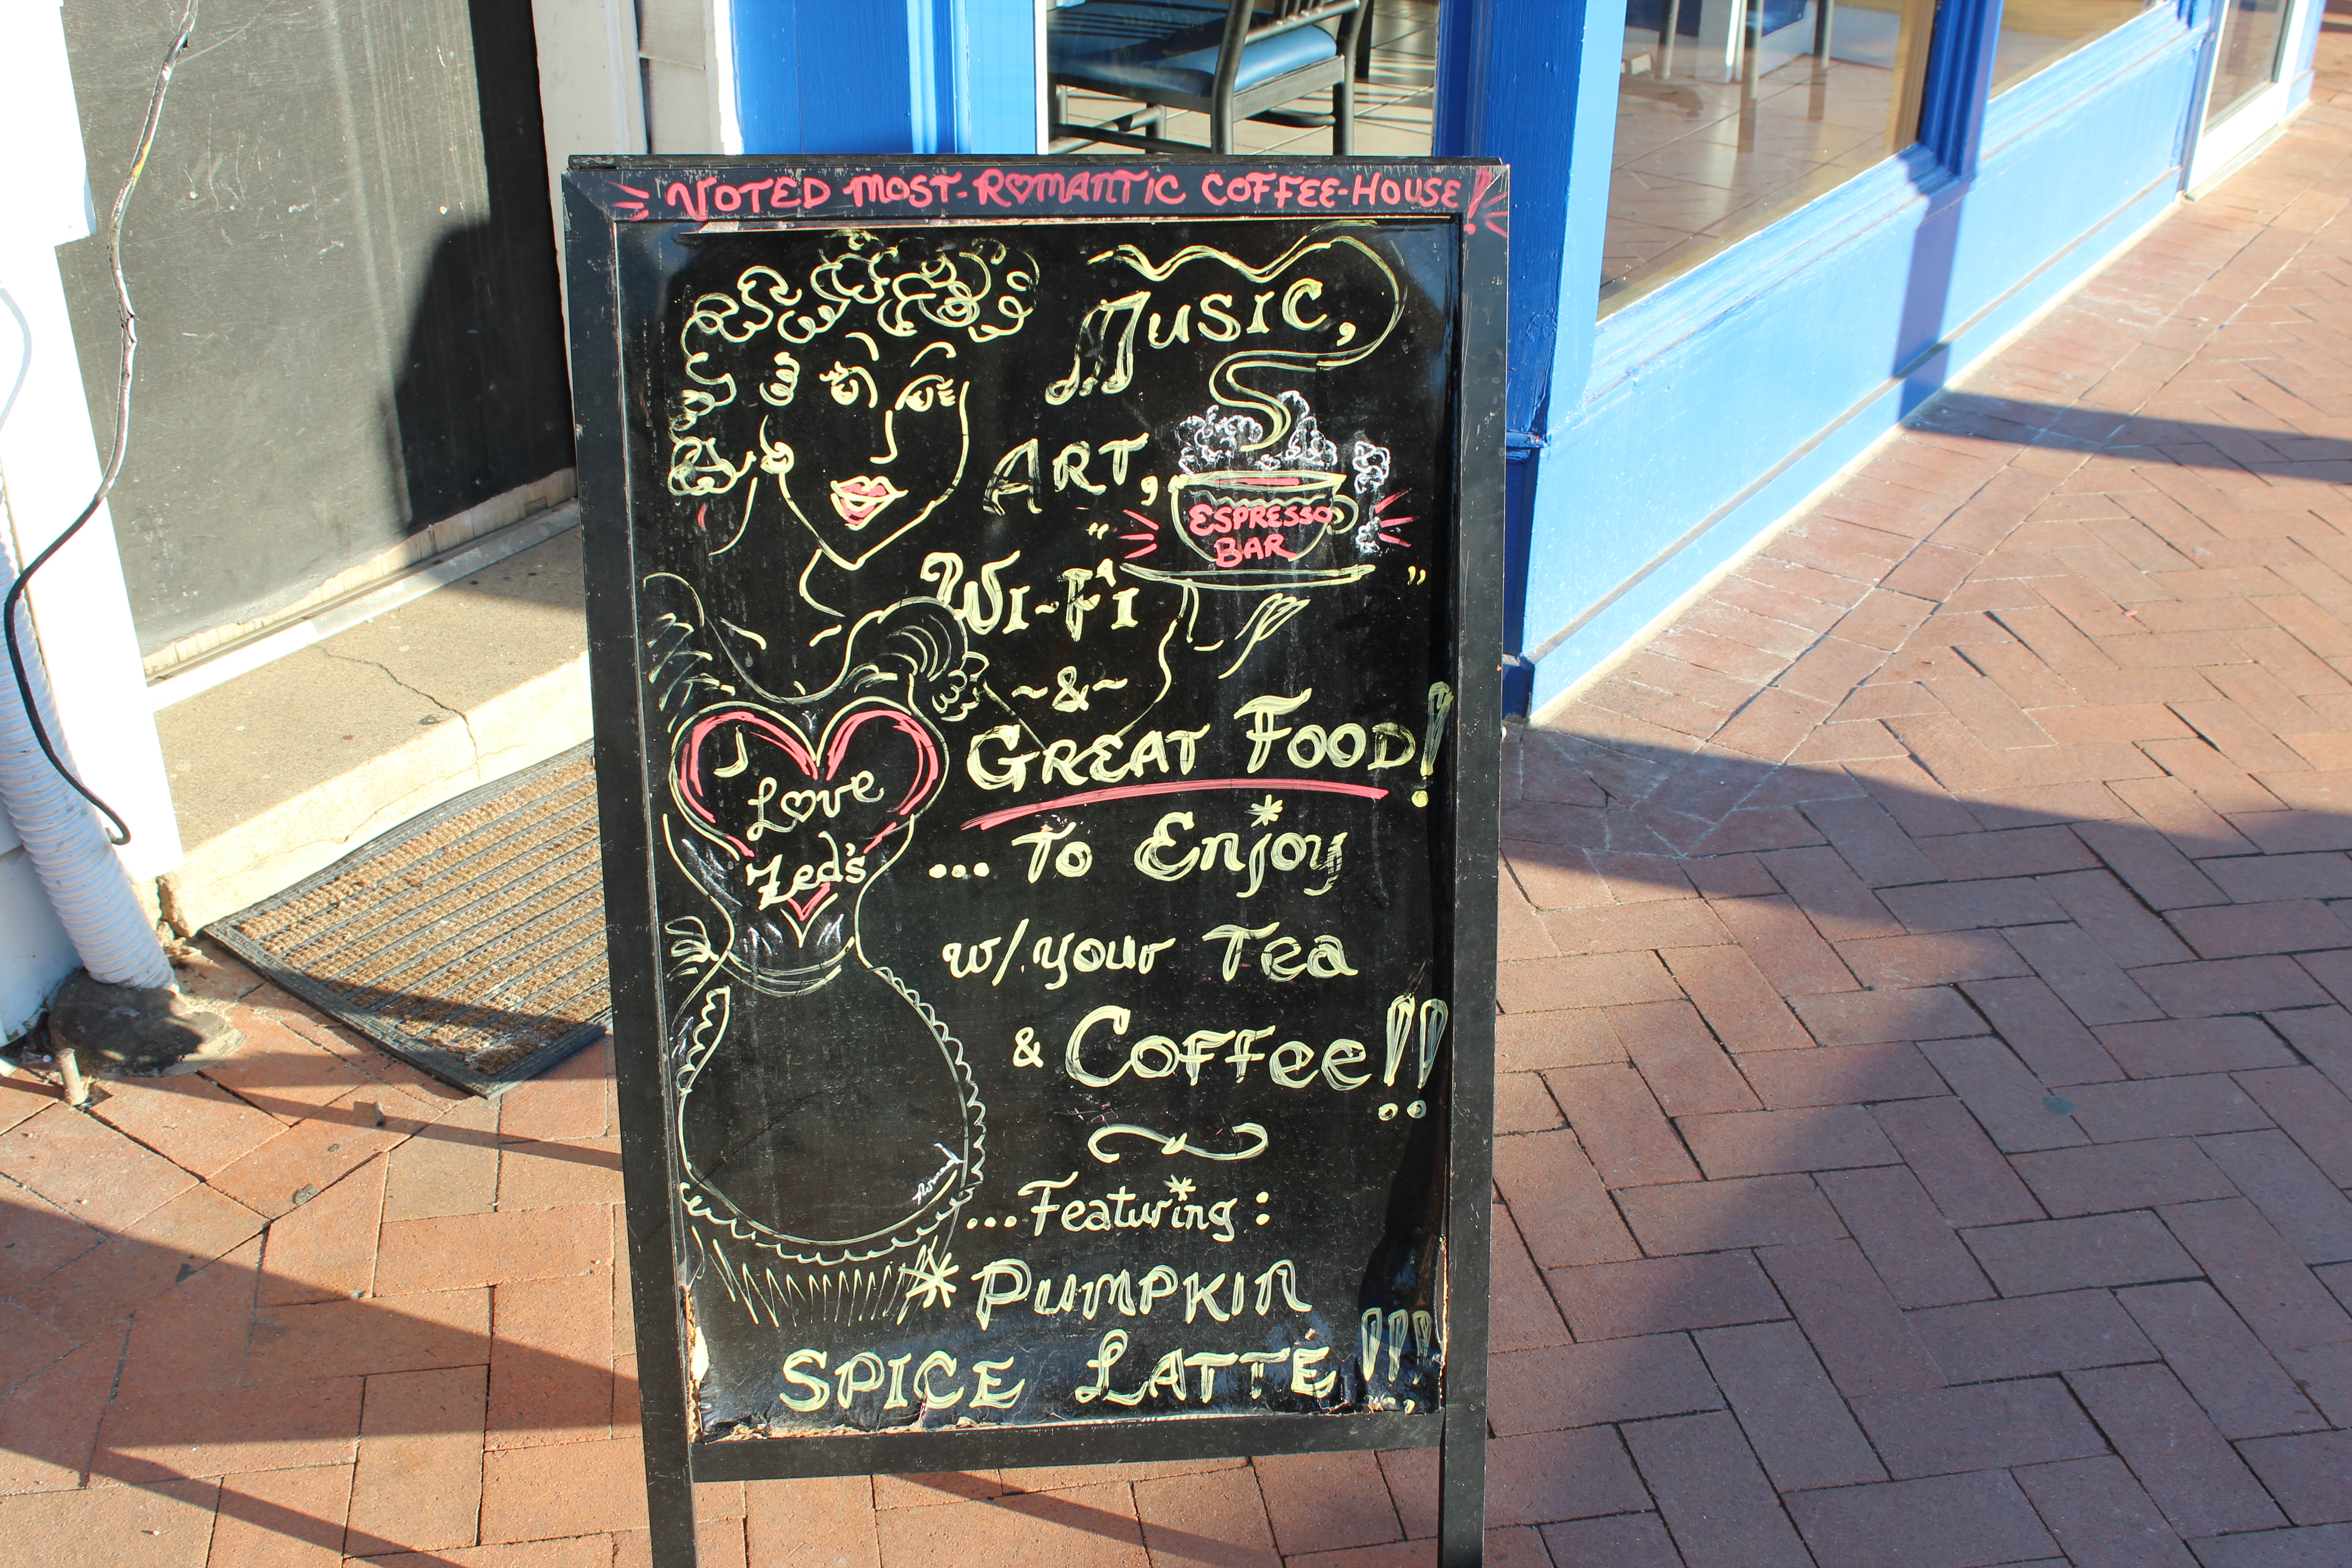 VOTED MOST-ROMANTIC COFFEE-HOUSE!
MUSIC,
ART,
ESPRESSO
BAR
"WI-FI"
~&~
GREAT FOOD!
I
Love
Zed's
... To Enjoy
w/ your Tea
& Coffee!!
...Featuring:
*PUMPKIN
SPICE LATTÉ!!!